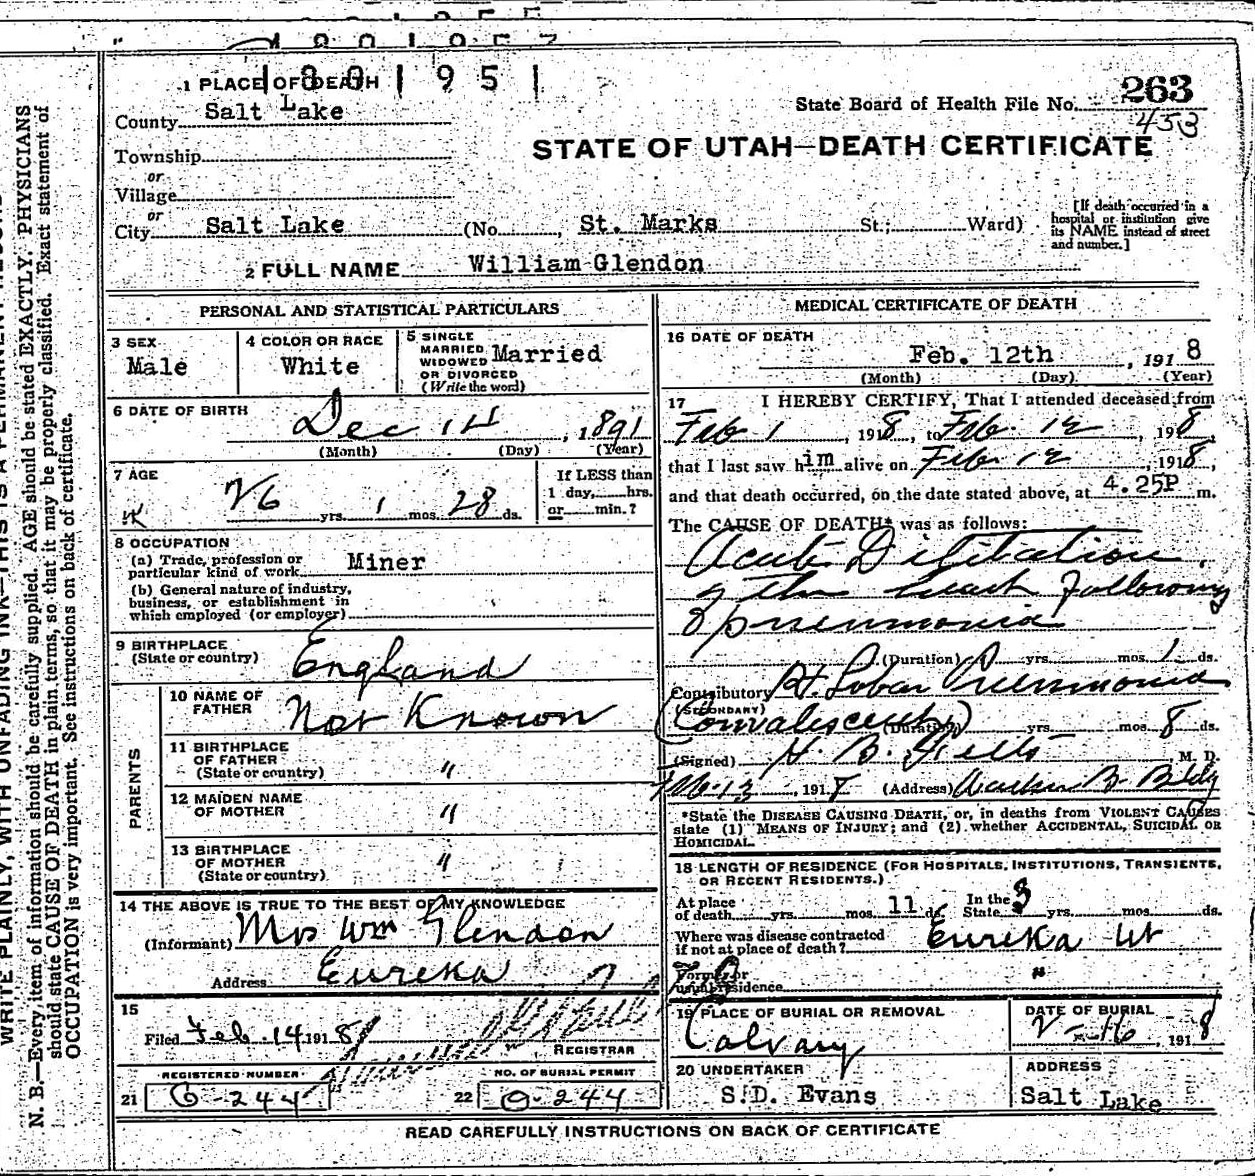 1801951
1 PLACE OF DEATH
County Salt Lake
State Board of Health File No. 263
453
STATE OF UTAH—DEATH CERTIFICATE
Township
or
Village
or
City Salt Lake (No. , St. Marks St.; Ward)
[If death occurred in a hospital or institution give its NAME instead of street and number.]
2 FULL NAME William Glendon
PERSONAL AND STATISTICAL PARTICULARS
3 SEX
Male
4 COLOR OR RACE
White
5 SINGLE
MARRIED
WIDOWED
OR DIVORCED
(Write the word)
Married
6 DATE OF BIRTH
Dec 14, 1891
(Month) (Day) (Year)
7 AGE
26 yrs. 1 mos. 28 ds.
If LESS than
1 day, hrs.
or min.?
8 OCCUPATION
(a) Trade, profession or
particular kind of work Miner
(b) General nature of industry,
business, or establishment in
which employed (or employer)
9 BIRTHPLACE
(State or country) England
PARENTS
10 NAME OF
FATHER Not Known
11 BIRTHPLACE
OF FATHER
(State or country) "
12 MAIDEN NAME
OF MOTHER "
13 BIRTHPLACE
OF MOTHER
(State or country) "
14 THE ABOVE IS TRUE TO THE BEST OF MY KNOWLEDGE
(Informant) Mrs Wm Glendon
Address Eureka
15
Filed Feb. 14 1918
REGISTRAR
REGISTERED NUMBER
21 G-244
NO. OF BURIAL PERMIT
22 O-244
MEDICAL CERTIFICATE OF DEATH
16 DATE OF DEATH
Feb. 12th, 1918
(Month) (Day) (Year)
17 I HEREBY CERTIFY, That I attended deceased from
Feb 1, 1918, to Feb. 12, 1918,
that I last saw him alive on Feb 12, 1918,
and that death occurred, on the date stated above, at 4.25P m.
The CAUSE OF DEATH* was as follows:
Acute Dilitation
of the heart following
pneumonia
(Duration) yrs. mos. 1 ds.
Contributory Rt. Lobar Pneumonia
(SECONDARY)
(Convalescent) (Duration) yrs. mos. 8 ds.
(Signed) H. B. M. D.
Feb 13, 1918 (Address) Walker B. Bldg
*State the DISEASE CAUSING DEATH, or, in deaths from VIOLENT CAUSES
state (1) MEANS OF INJURY; and (2) whether ACCIDENTAL, SUICIDAL OR
HOMICIDAL.
18 LENGTH OF RESIDENCE (FOR HOSPITALS, INSTITUTIONS, TRANSIENTS,
OR RECENT RESIDENTS.)
At place
of death yrs. mos. 11 ds.
In the
State 3 yrs. mos. ds.
Where was disease contracted
if not at place of death? Eureka Ut
Former or
usual residence "
19 PLACE OF BURIAL OR REMOVAL
Calvary
DATE OF BURIAL
2-16, 1918
20 UNDERTAKER
S.D. Evans
ADDRESS
Salt Lake
READ CAREFULLY INSTRUCTIONS ON BACK OF CERTIFICATE
WRITE PLAINLY, WITH UNFADING INK—THIS IS A PERMANENT RECORD
N. B.—Every item of information should be carefully supplied. AGE should be stated EXACTLY. PHYSICIANS
should state CAUSE OF DEATH in plain terms, so that it may be properly classified. Exact statement of
OCCUPATION is very important. See instructions on back of certificate.